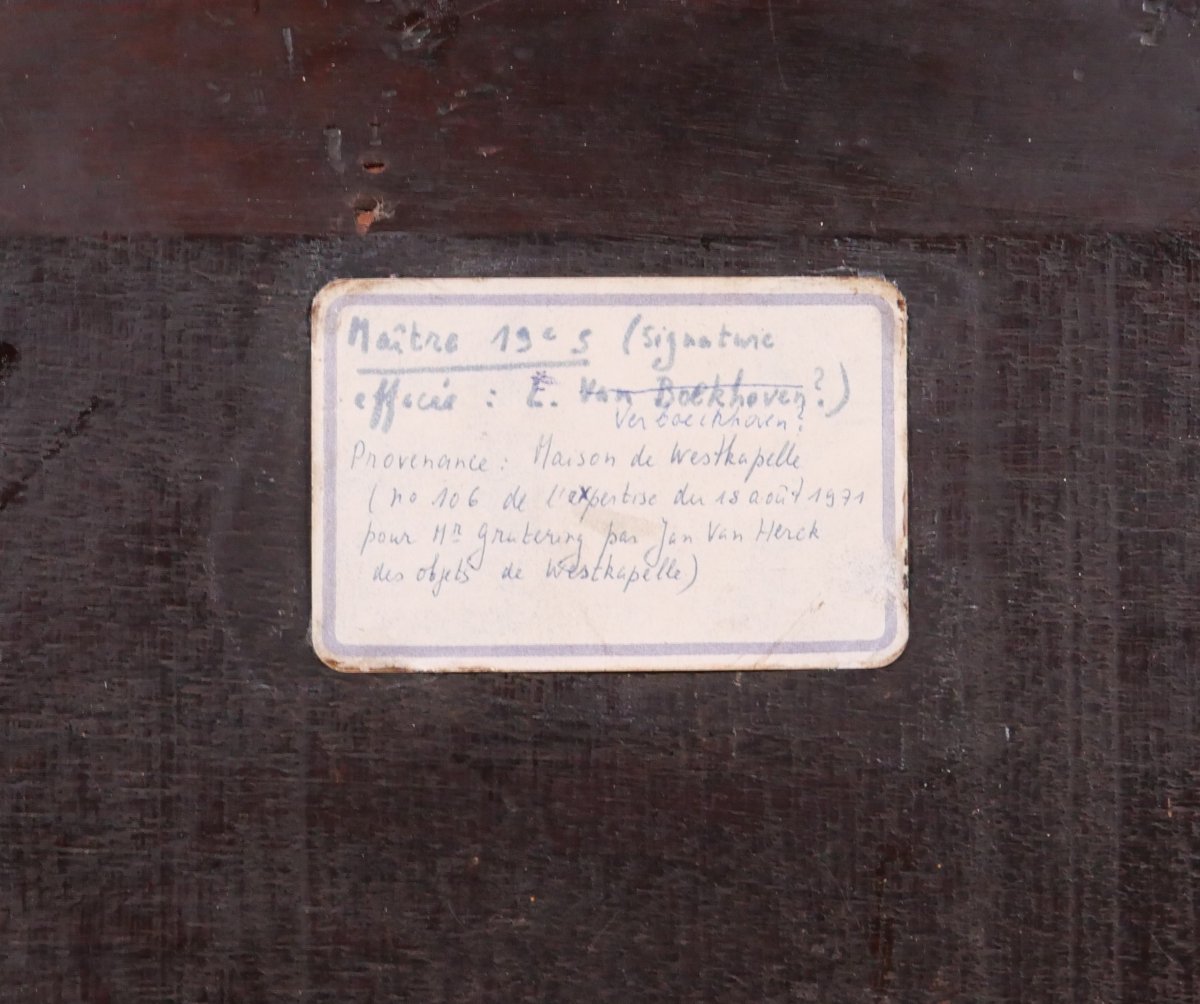 Maître 19e s (Signature
effacée : E. Van Boekhoven ?)
Verboeckhoven ?
Provenance : Maison de Westkapelle
(no 106 de l'expertise du 18 août 1971
pour Mr Grutering par Jan Van Herck
des objets de Westkapelle)